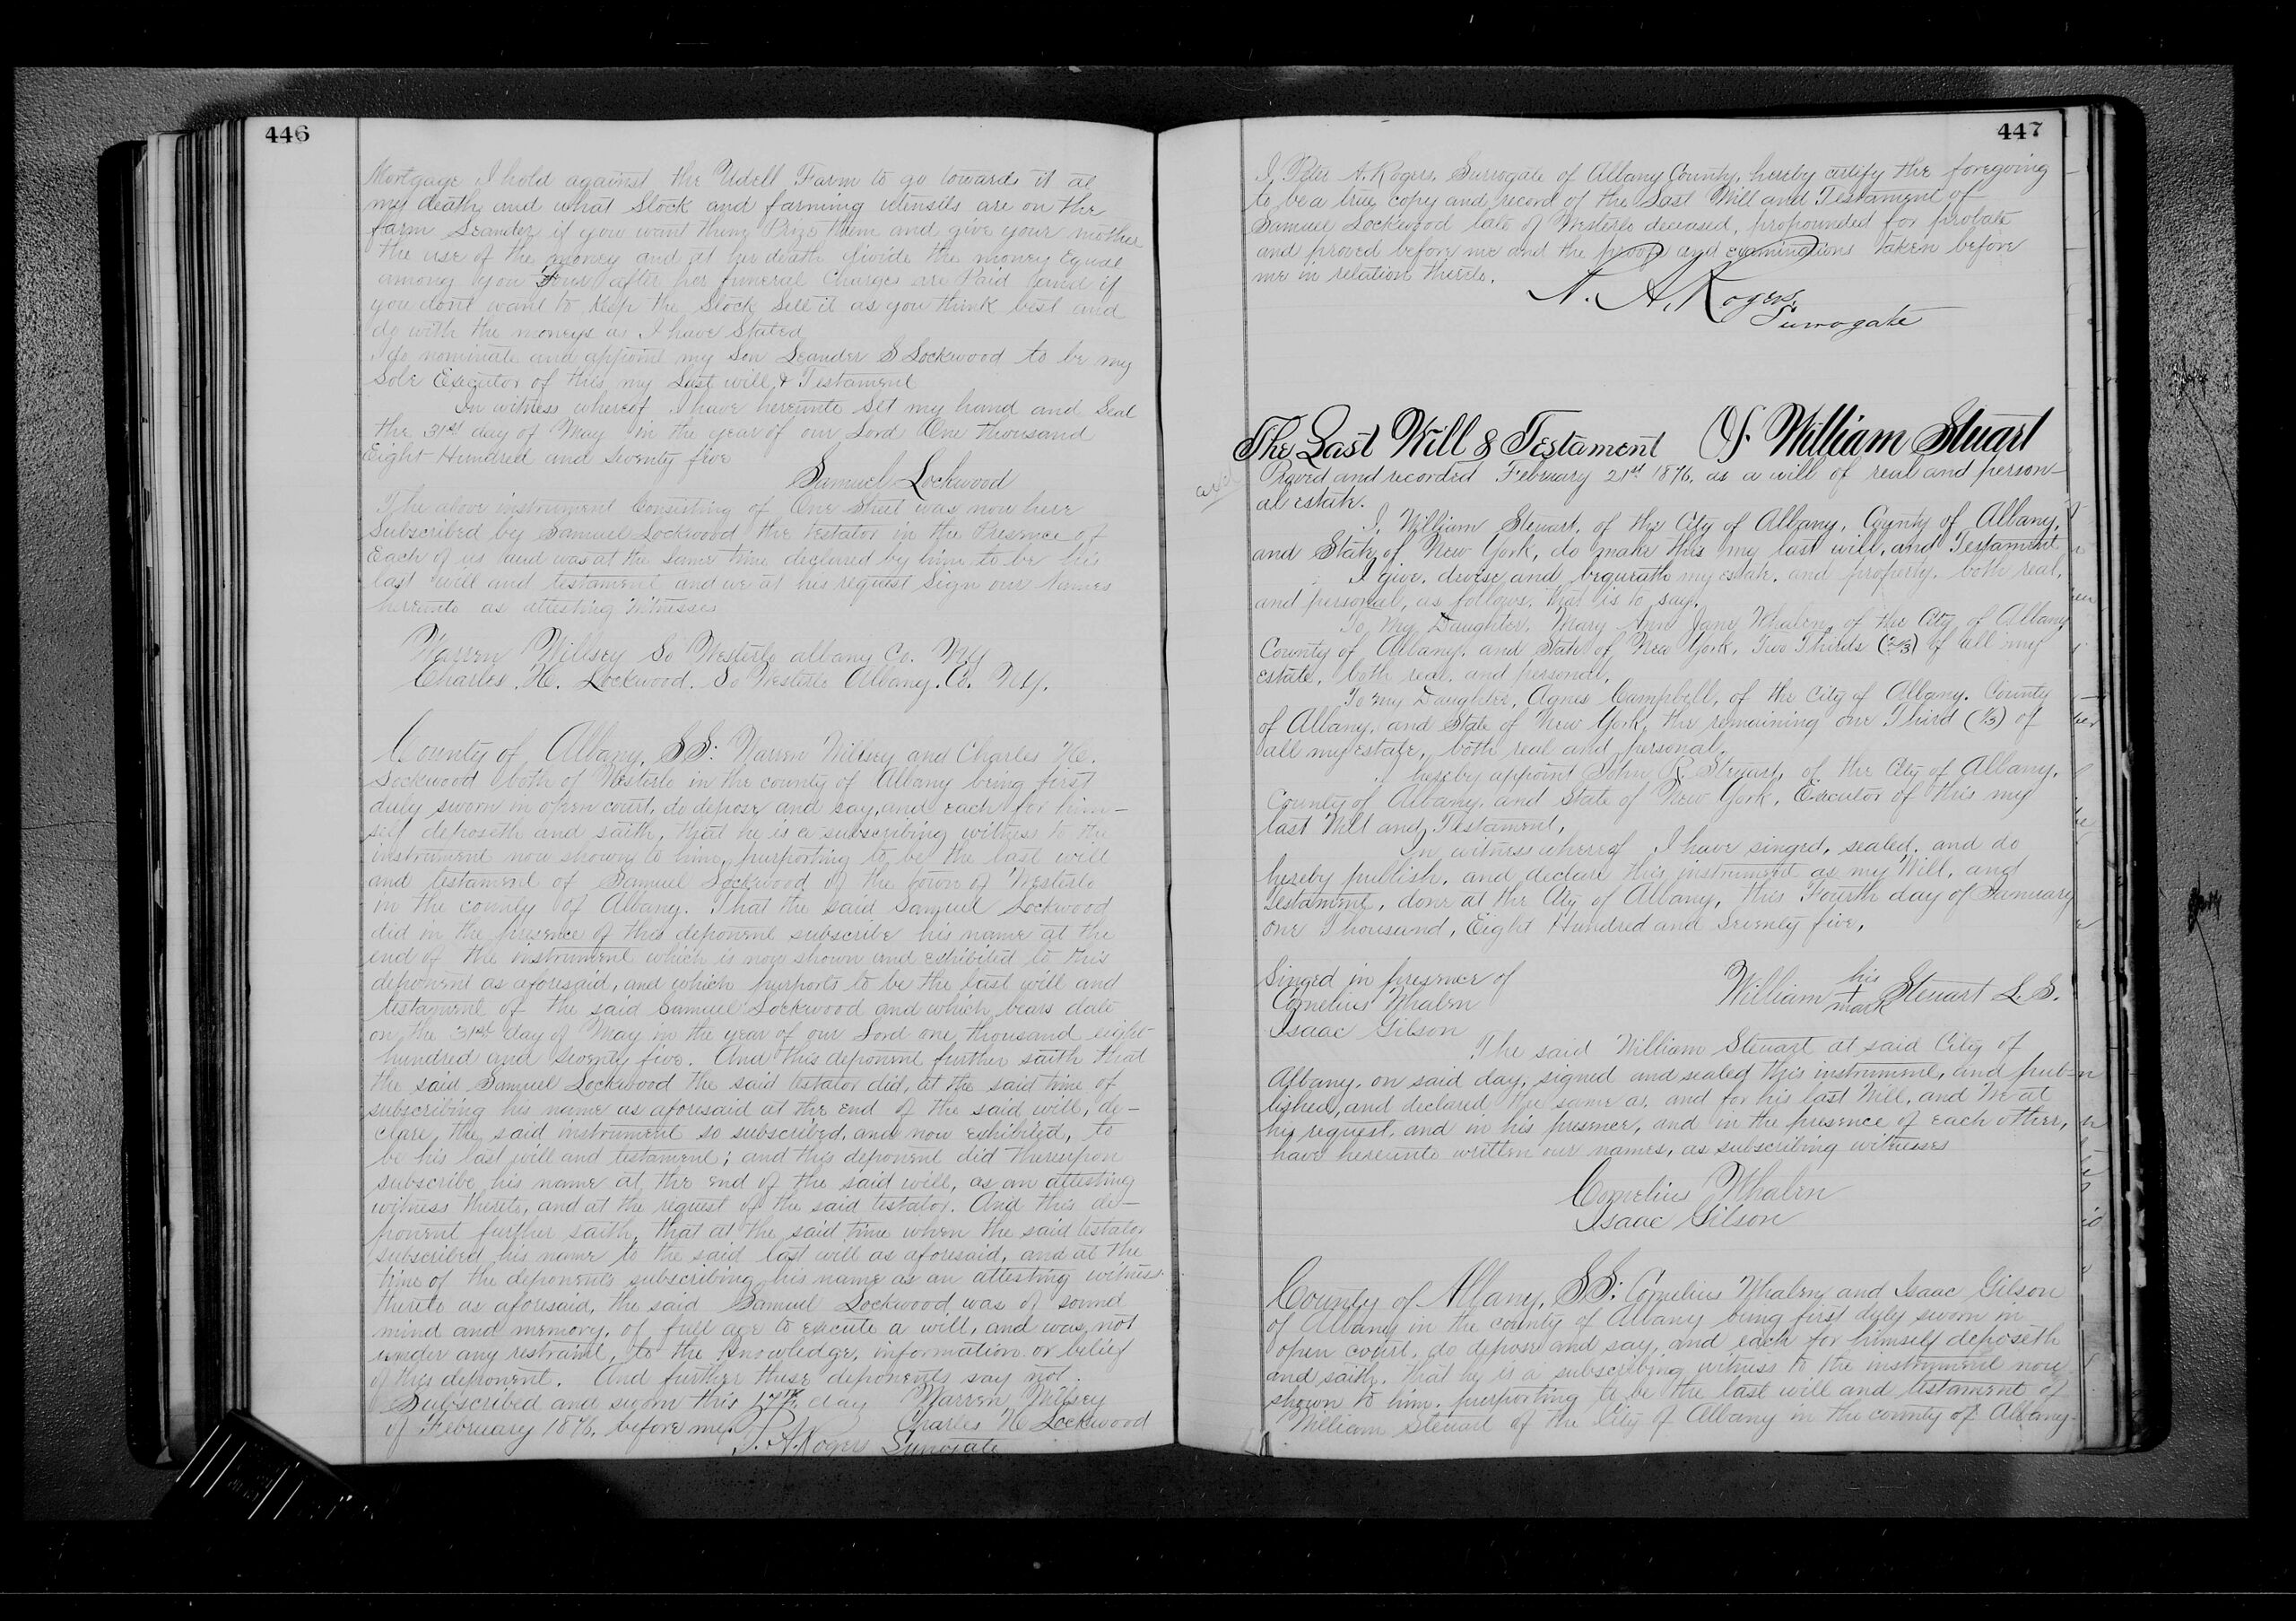 446
Mortgage I hold against the Udell Farm to go towards it at
my death and what Stock and farming utensils are on the
farm Leander if you want them Prize them and give your mother
the use of the money and at her death divide the money Equal
among you four after her funeral Charges are Paid and if
you dont want to keep the Stock Sell it as you think best and
do with the moneys as I have Stated
I do nominate and appoint my Son Leander S Lockwood to be my
Sole Executor of this my Last will & Testament
In witness whereof I have hereunto Set my hand and Seal
the 31st day of May in the year of our Lord One thousand
Eight Hundred and Seventy five
Samuel Lockwood
The above instrument Consisting of One Sheet was now here
Subscribed by Samuel Lockwood the testator in the Presence of
Each of us and was at the Same time declared by him to be his
last will and testament and we at his request Sign our Names
hereunto as attesting Witnesses
Warren Willsey So Westerlo albany Co. NY
Charles H. Lockwood. So Westerlo Albany. Co. NY.
County of Albany, SS: Warren Willsey and Charles H.
Lockwood both of Westerlo in the county of Albany being first
duly sworn in open court, do depose and say, and each for him-
self deposeth and saith, that he is a subscribing witness to the
instrument now shown to him, purporting to be the last will
and testament of Samuel Lockwood of the town of Westerlo
in the county of Albany. That the said Samuel Lockwood
did in the presence of this deponent subscribe his name at the
end of the instrument which is now shown and exhibited to this
deponent as aforesaid, and which purports to be the last will and
testament of the said Samuel Lockwood and which bears date
on the 31st day of May in the year of our Lord one thousand eight
hundred and seventy five. And this deponent further saith that
the said Samuel Lockwood the said testator did, at the said time of
subscribing his name as aforesaid at the end of the said will, de-
clare the said instrument so subscribed, and now exhibited, to
be his last will and testament; and this deponent did thereupon
subscribe his name at the end of the said will, as an attesting
witness thereto, and at the request of the said testator. And this de-
ponent further saith, that at the said time when the said testator
subscribed his name to the said last will as aforesaid, and at the
time of the deponents subscribing his name as an attesting witness
thereto as aforesaid, the said Samuel Lockwood was of sound
mind and memory, of full age to execute a will, and was not
under any restraint, to the knowledge, information or belief
of this deponent. And further these deponents say not.
Subscribed and sworn this 17th day Warren Willsey
of February 1876, before me. Charles H Lockwood
P. A. Rogers Surrogate
447
I, Peter A. Rogers, Surrogate of Albany County, hereby certify the foregoing
to be a true copy and record of the Last Will and Testament of
Samuel Lockwood late of Westerlo deceased, propounded for probate
and proved before me and the proofs and examinations taken before
me in relation thereto.
P. A. Rogers,
Surrogate
The Last Will & Testament Of William Stuart
Proved and recorded February 21st 1876, as a will of real and person-
al estate.
I, William Steuart, of the City of Albany, County of Albany,
and State of New York, do make this my last will, and Testament
I give, devise, and bequeath my estate, and property, both real,
and personal, as follows, that is to say,
To My Daughter, Mary Ann Jane Whalen, of the City of Albany
County of Albany, and State of New York, Two Thirds (2/3) of all my
estate, both real, and personal,
To my Daughter, Agnes Campbell, of the City of Albany, County
of Albany, and State of New York, the remaining one Third (1/3) of
all my estate, both real and personal,
I hereby appoint John R. Steuart, of the City of Albany,
County of Albany, and State of New York, Executor of this my
last Will and Testament,
In witness whereof I have singed, sealed, and do
hereby publish, and declare this instrument as my Will, and
testament, done at the City of Albany, this Fourth day of January
One Thousand, Eight Hundred and Seventy five,
Singed in presence of
Cornelius Whalen
Isaac Gilson
William his + mark Steuart L.S.
The said William Steuart at said City of
Albany, on said day, signed and sealed this instrument, and pub-
lished, and declared the same as, and for his last Will, and We at
his request, and in his presence, and in the presence of each other,
have hereunto written our names, as subscribing witnesses
Cornelius Whalen
Isaac Gilson
County of Albany, SS: Cornelius Whalen and Isaac Gilson
of Albany in the county of Albany being first duly sworn in
open court, do depose and say, and each for himself deposeth
and saith, that he is a subscribing witness to the instrument now
shown to him, purporting to be the last will and testament of
William Steuart of the City of Albany in the county of Albany.